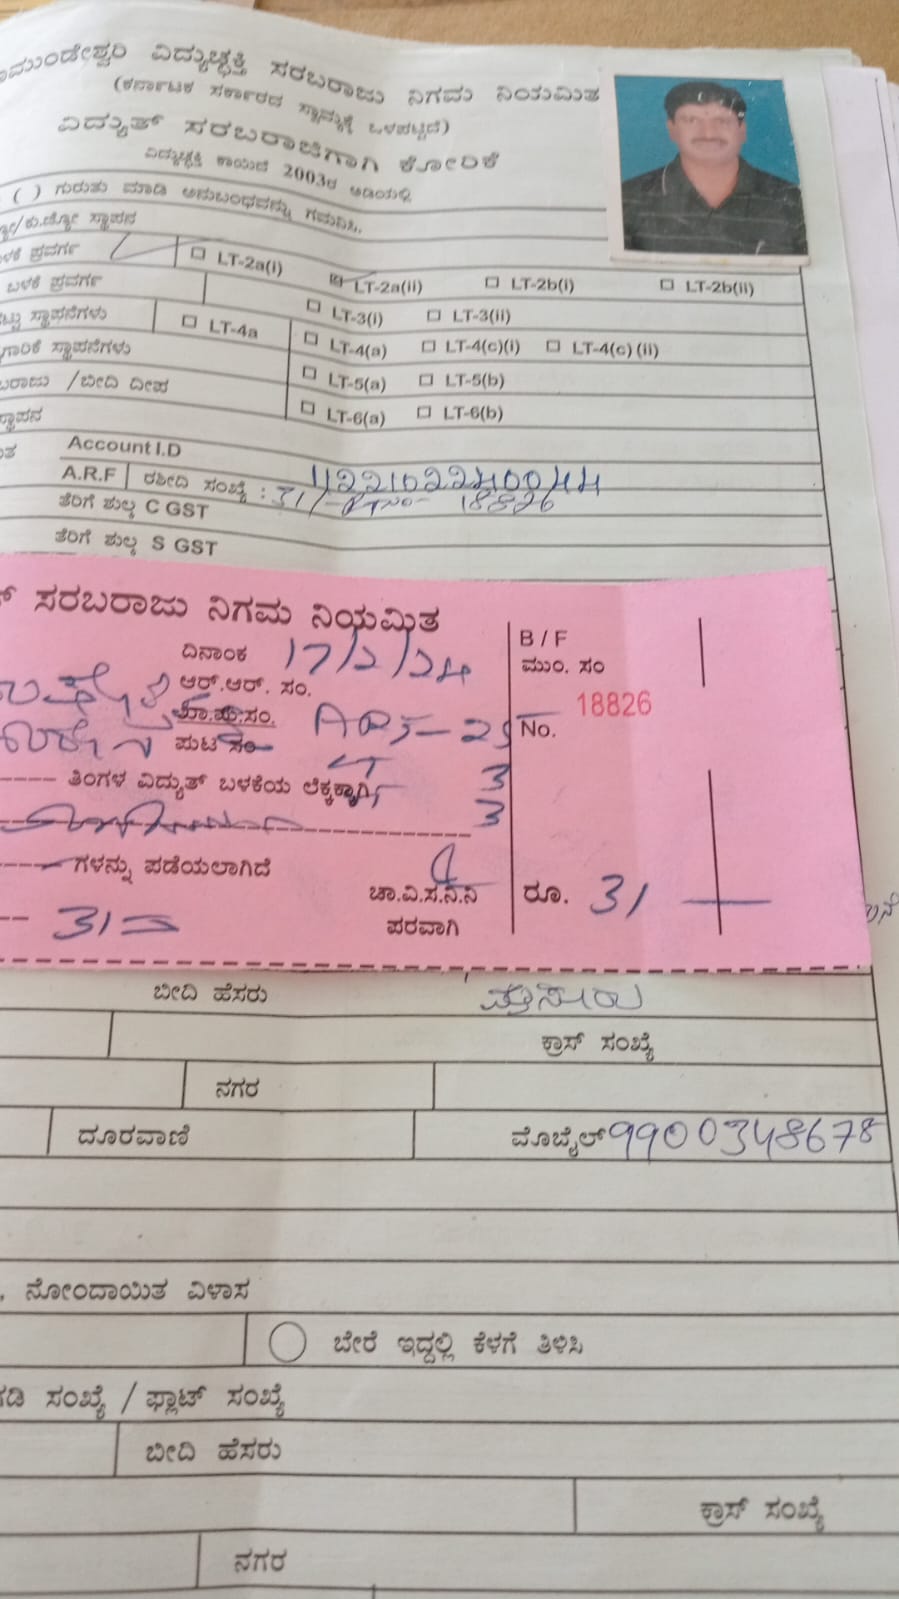 ಮುಂಡೇಶ್ವರಿ ವಿದ್ಯುಚ್ಛಕ್ತಿ ಸರಬರಾಜು ನಿಗಮ ನಿಯಮಿತ
(ಕರ್ನಾಟಕ ಸರ್ಕಾರದ ಸ್ವಾಮ್ಯಕ್ಕೆ ಒಳಪಟ್ಟಿದೆ)
ವಿದ್ಯುತ್ ಸರಬರಾಜಿಗಾಗಿ ಕೋರಿಕೆ
ವಿದ್ಯುಚ್ಛಕ್ತಿ ಕಾಯಿದೆ 2003ರ ಅಡಿಯಲ್ಲಿ
( ) ಗುರುತು ಮಾಡಿ ಅನುಬಂಧವನ್ನು ಗಮನಿಸಿ.
ಸ್ಥಾಪನ
ಬಳಕೆ ಪ್ರವರ್ಗ LT-2a(i) LT-2a(ii) LT-2b(i) LT-2b(ii)
ಬಳಕೆ ಪ್ರವರ್ಗ LT-3(i) LT-3(ii)
ಸ್ಥಾಪನೆಗಳು LT-4a LT-4(a) LT-4(c)(i) LT-4(c) (ii)
ಗಾರಿಕೆ ಸ್ಥಾಪನೆಗಳು LT-5(a) LT-5(b)
ಬರಾಜು /ಬೀದಿ ದೀಪ LT-6(a) LT-6(b)
ಸ್ಥಾಪನ
Account I.D
A.R.F ರಶೀದಿ ಸಂಖ್ಯೆ : 31/- 18826
ತೆರಿಗೆ ಶುಲ್ಕ C GST
ತೆರಿಗೆ ಶುಲ್ಕ S GST
ಸರಬರಾಜು ನಿಗಮ ನಿಯಮಿತ
ದಿನಾಂಕ 17/2/24
B / F
ಆರ್.ಆರ್. ಸಂ.
ಮುಂ. ಸಂ
ಖಾ.ಪು.ಸಂ.
ಪುಟ ಸಂ
No. 18826
ತಿಂಗಳ ವಿದ್ಯುತ್ ಬಳಕೆಯ ಲೆಕ್ಕಕ್ಕಾಗಿ
ಗಳನ್ನು ಪಡೆಯಲಾಗಿದೆ
ಚಾ.ವಿ.ಸ.ನಿ.ನಿ
ರೂ. 31
ಪರವಾಗಿ
31
ಬೀದಿ ಹೆಸರು
ಕ್ರಾಸ್ ಸಂಖ್ಯೆ
ನಗರ
ದೂರವಾಣಿ ಮೊಬೈಲ್ 9900348678
ನೋಂದಾಯಿತ ವಿಳಾಸ
ಬೇರೆ ಇದ್ದಲ್ಲಿ ಕೆಳಗೆ ತಿಳಿಸಿ
ಗಡಿ ಸಂಖ್ಯೆ / ಫ್ಲಾಟ್ ಸಂಖ್ಯೆ
ಬೀದಿ ಹೆಸರು
ಕ್ರಾಸ್ ಸಂಖ್ಯೆ
ನಗರ